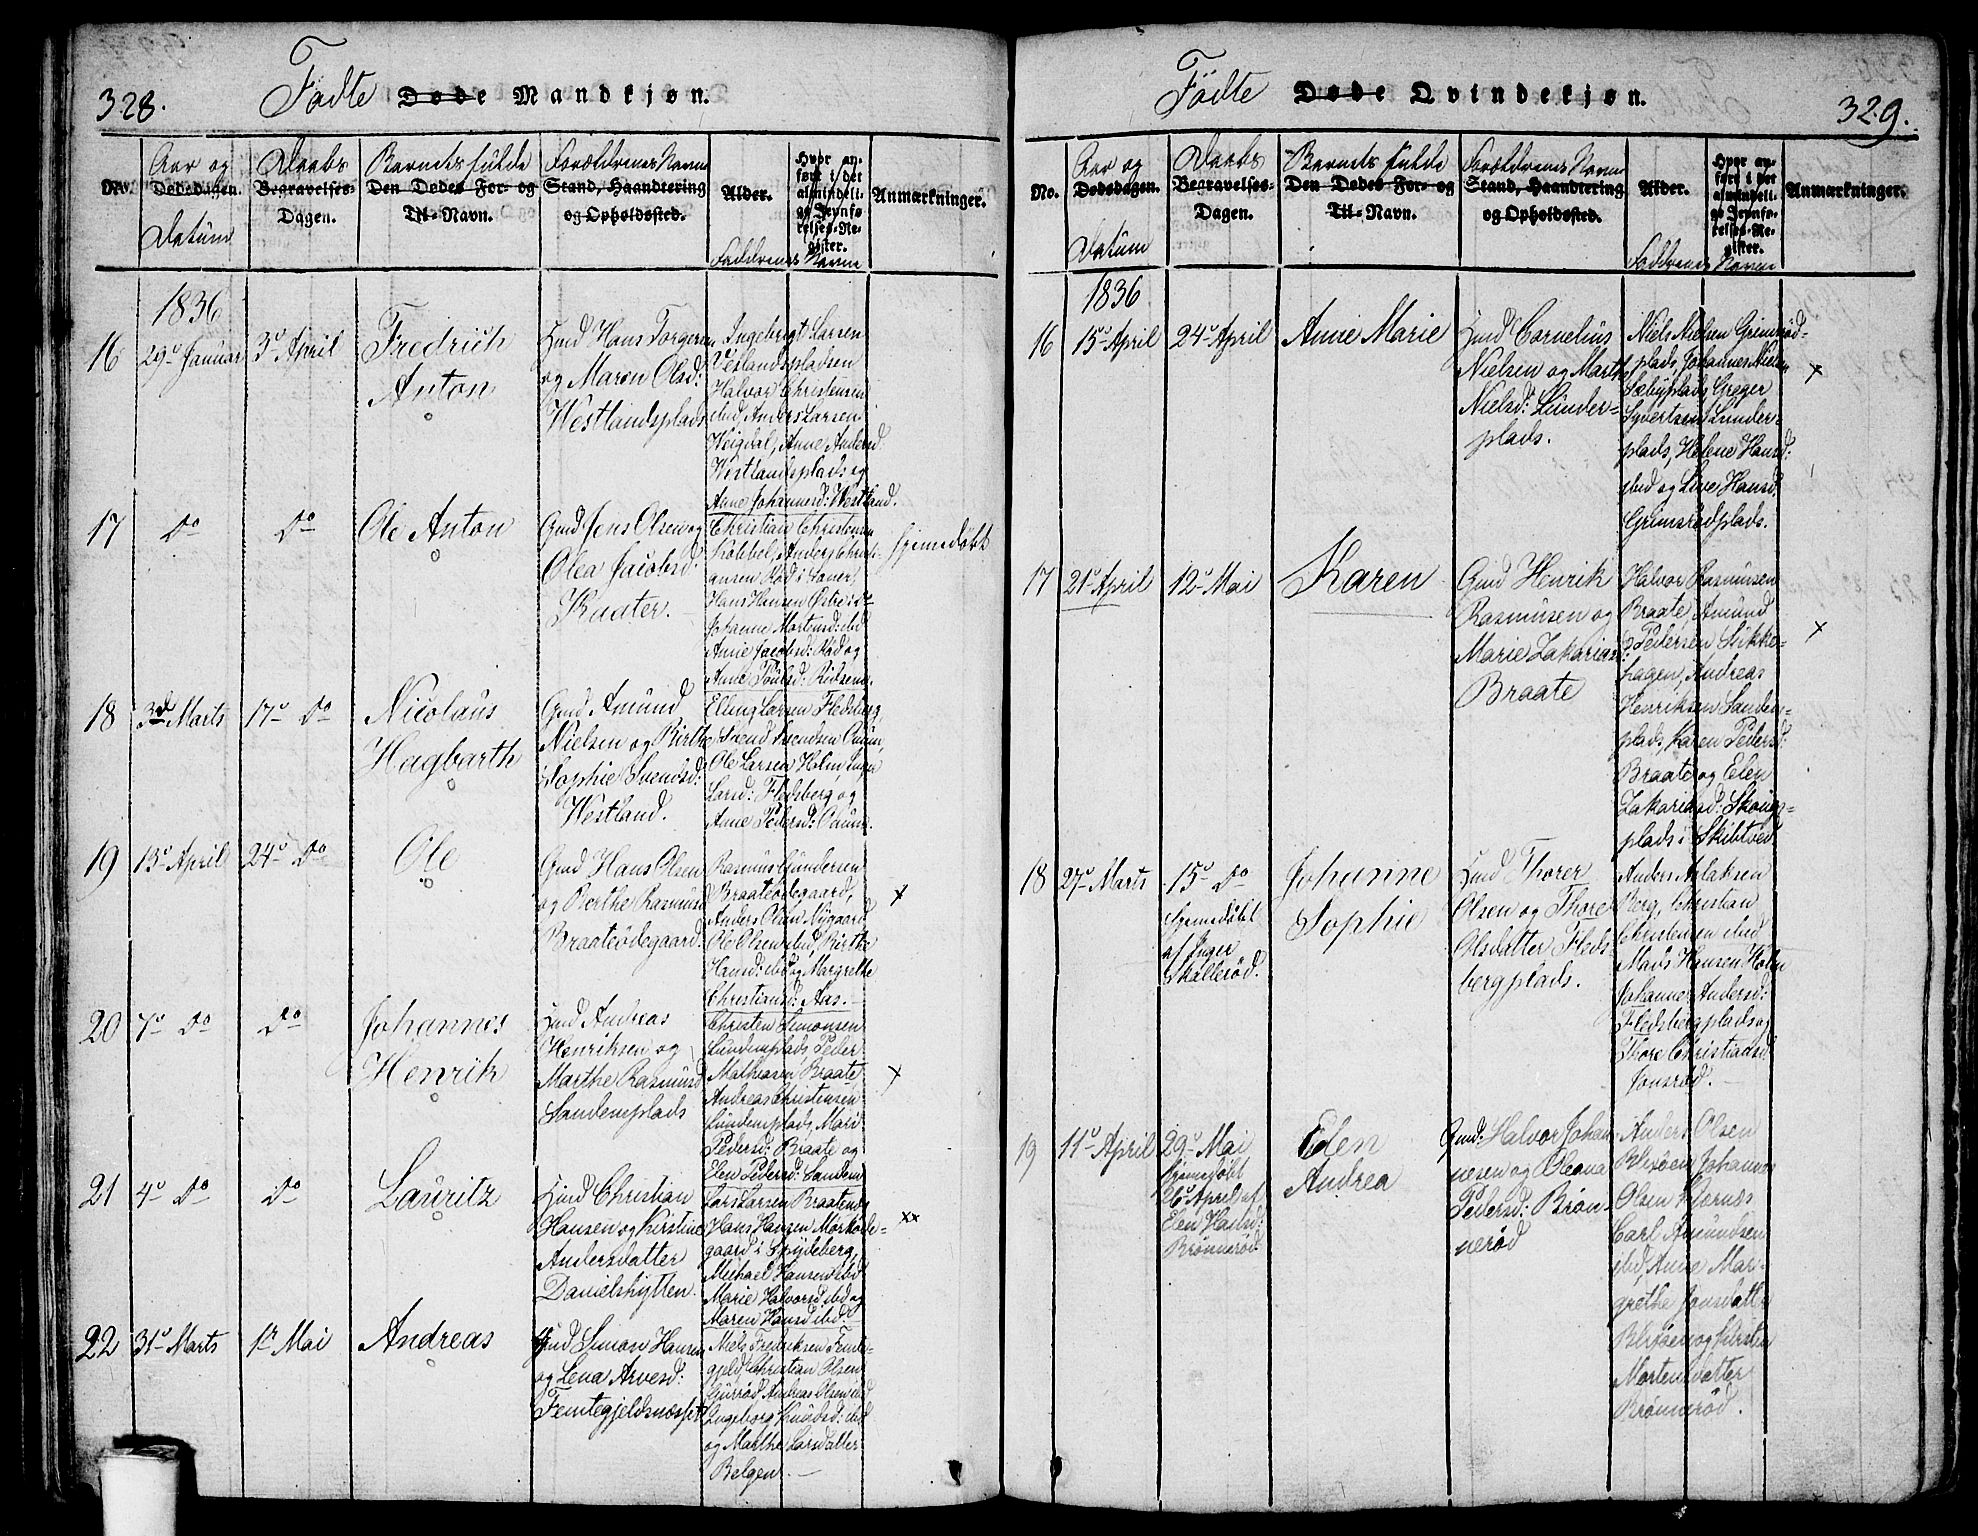 328.
Födte Døde Mandkjøn.
No.
Aar og
Dødsdagen.
Datum
Daabs
Begravelses-
Dagen.
Barnets fulde
Den Dødes For- og
Til-Navn.
Forældrenes Navne
Stand, Haandtering
og Opholdssted.
Alder.
Hvor an-
ført i det
almindeli-
ge Jevnfø-
relses-Re-
gister.
Faddernes Navne
Anmærkninger.
1836
16
29de Januar
3de April
Fredrich
Anton
Hans Torgersen
og Maren Olsd:
Westlandsplads
Ingebregt Larsen
Vestlandspladsen
Halvor Christensen
ibid, Anders Larsen
Heigdal, Anne Andersd
Westlandsplads og
Anne Johannesd: Westland.
17
Do
Do
Ole Anton
Gmd Jens Olsen og
Olea Jacobsd
Knater.
Christian Christensen
Kobbel, Anders Christi-
ansen Rød i Saner,
Hans Hansen Østre i do
Johanne Mortensd: ibd
Anne Jacobsd: Rød og
Anne Poulsd:
hjemmedøbt
18
3d Marts
17de Do
Nicolaus
Hagbarth
Gmd Amund
Nielsen og Birthe
Sophie Svendsd:
Westland.
Elling Larsen Fledsberg,
Svend Svendsen
Ole Larsen Holm Inger
Larsd: Fledsberg og
Anne Pedersd:
19
15de April
24de Do
Ole
Gmd Hans Olsen
og Berthe Rasmusd
Braateödegaard
Rasmus Gundersen
Braateödegaard,
Anders Olsen Nygaard
Ole Olsen ibid, Birthe
Hansd: ibd og Margrethe
Christiansd: Aas.
x
20
7de Do
Do
Johannes
Henrik
Andreas
Henriksen og
Marthe Rasmusd
Sandemplads
Christen Simonsen
Sundemplads, Peder
Mathiasen Braate
Andreas Christensen
Sundemplads, Mari
Pedersd: Braate og
Elen Pedersd: Sandem
x
21
4de Do
Do
Lauritz
Christian
Hansen og Kirstine
Andersdatter
Danielshytten.
Lars Larsen Braaten,
Hans Hansen Morköde-
gaard i Spydeberg,
Michael Hansen ibd
Marie Halvorsd ibd og
Maren Hansd ibd.
xx
22
31de Marts
1ste Mai
Andreas
Gmd Simon Hansen
og Lena Arvesd:
Femtegjeldsnæsset
Niels Fredriksen Femte-
gjeld, Christian Olsen
Andreas Olsen ibd
Ingeborg Knudsd: ibd
og Marthe Larsdatter
Belgen.
329.
Födte Døde Qvindekjøn.
No.
Aar og
Dødsdagen.
Datum
Daabs
Begravelses-
Dagen.
Barnets fulde
Den Dødes For- og
Til-Navn.
Forældrenes Navne
Stand, Haandtering
og Opholdssted.
Alder.
Hvor an-
ført i det
almindeli-
ge Jevnfø-
relses-Re-
gister.
Faddernes Navne
Anmærkninger.
1836
16
15de April
24de April
Anne Marie
Cornelius
Nielsen og Marthe
Nielsd: Lunder-
plads.
Niels Nielsen Grimsröd-
plads, Johannes Nielsen
Sæbyplads, Greger
Syvertsen Lunder-
plads, Helene Hansd:
ibid og Live Hansd.
Grimsrödplads.
x
17
21de April
12de Mai
Karen
Gmd Henrik
Rasmusen og
Marie Zakariasd:
Braate
Halvor Rasmusen
Braate, Amund
Pedersen Slikke-
hagen, Andreas
Henriksen Sandem-
plads, Karen Pedersd:
Braate og Elen
Zakariasd: Skoug-
plads i Skibtved
x
18
27de Marts
15de Do
hjemmedöbt
af Inger
Skallerød.
Johanne
Sophie
Thorer
Olsen og Thore
Olsdatter Fleds
bergplads.
Anders Aslaksen
Berg, Christian
Christensen ibid
Mads Hansen Holm
Johanne Andersd:
Fledsbergplads og
Thore Christiansd
Jonsrød.
19
11de April
29de Mai
hjemmedøbt
26de April af
Elen Hansd:
Brønnerød
Elen
Andrea
Gmd: Halvor Johan
nesen og Oleana
Pedersd: Brön-
nerød
Anders Olsen
Blixöen, Johannes
Olsen Kjernæs
Carl Amundsen
ibd, Anne Mar-
grethe Jonsdatt:
Blixöen og Kirsten
Mortensdatter
Brönneröd.